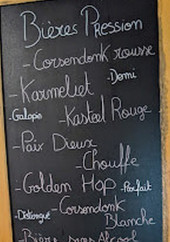 Bières Pression
- Corsendonk rousse
- Karmeliet
- Demi
- Galopin
- Kasteel Rouge
- Paix Dieux
- Chouffe
- Golden Hop
- Parfait
- Corsendonk
Blanche
- Bière sans Alcool